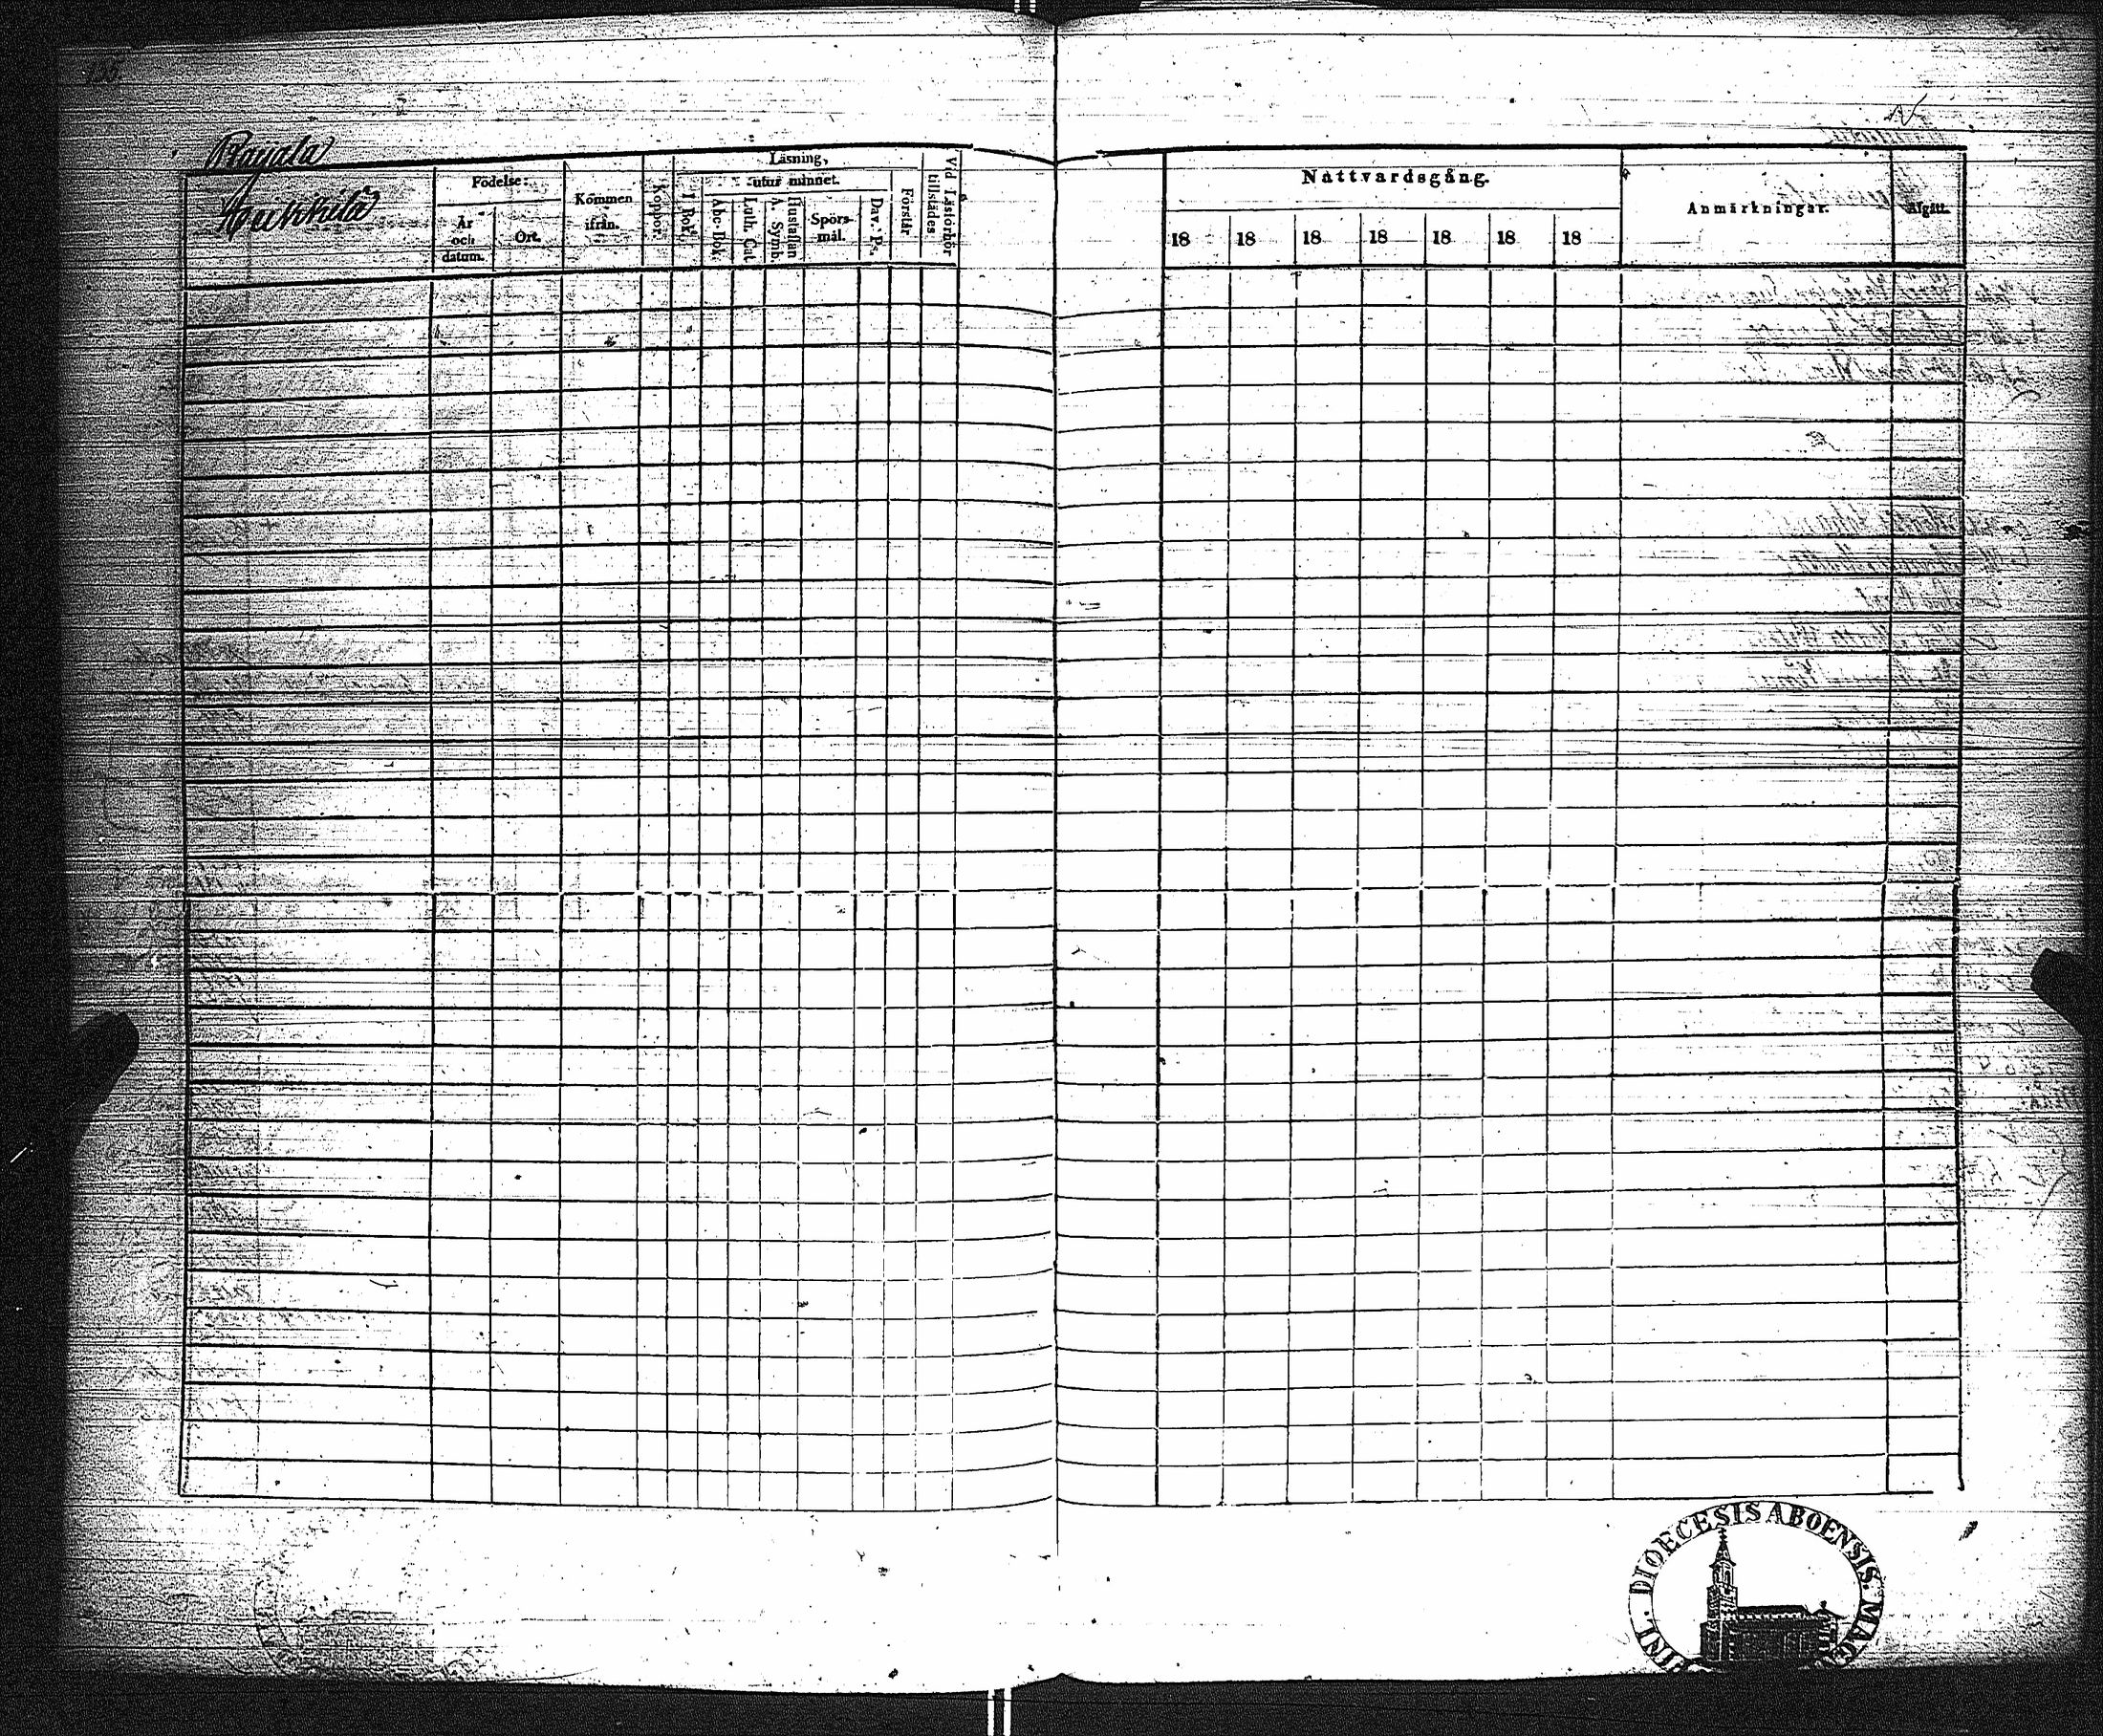 155
Rayala
Heikkilä
Födelse:
År och datum.
Ort.
Kommen ifrån.
Koppor.
Läsning,
utur minnet.
I Bok.
Abc-Bok.
Luth. Cat.
Hustaflan A. Symb.
Spörsmål.
Dav. Ps.
Förstår
Vid Läsförhör tillstädes.
Nattvardsgång.
18 18 18 18 18 18 18
Anmärkningar.
Afgått.
DIOECESIS ABOENSIS.